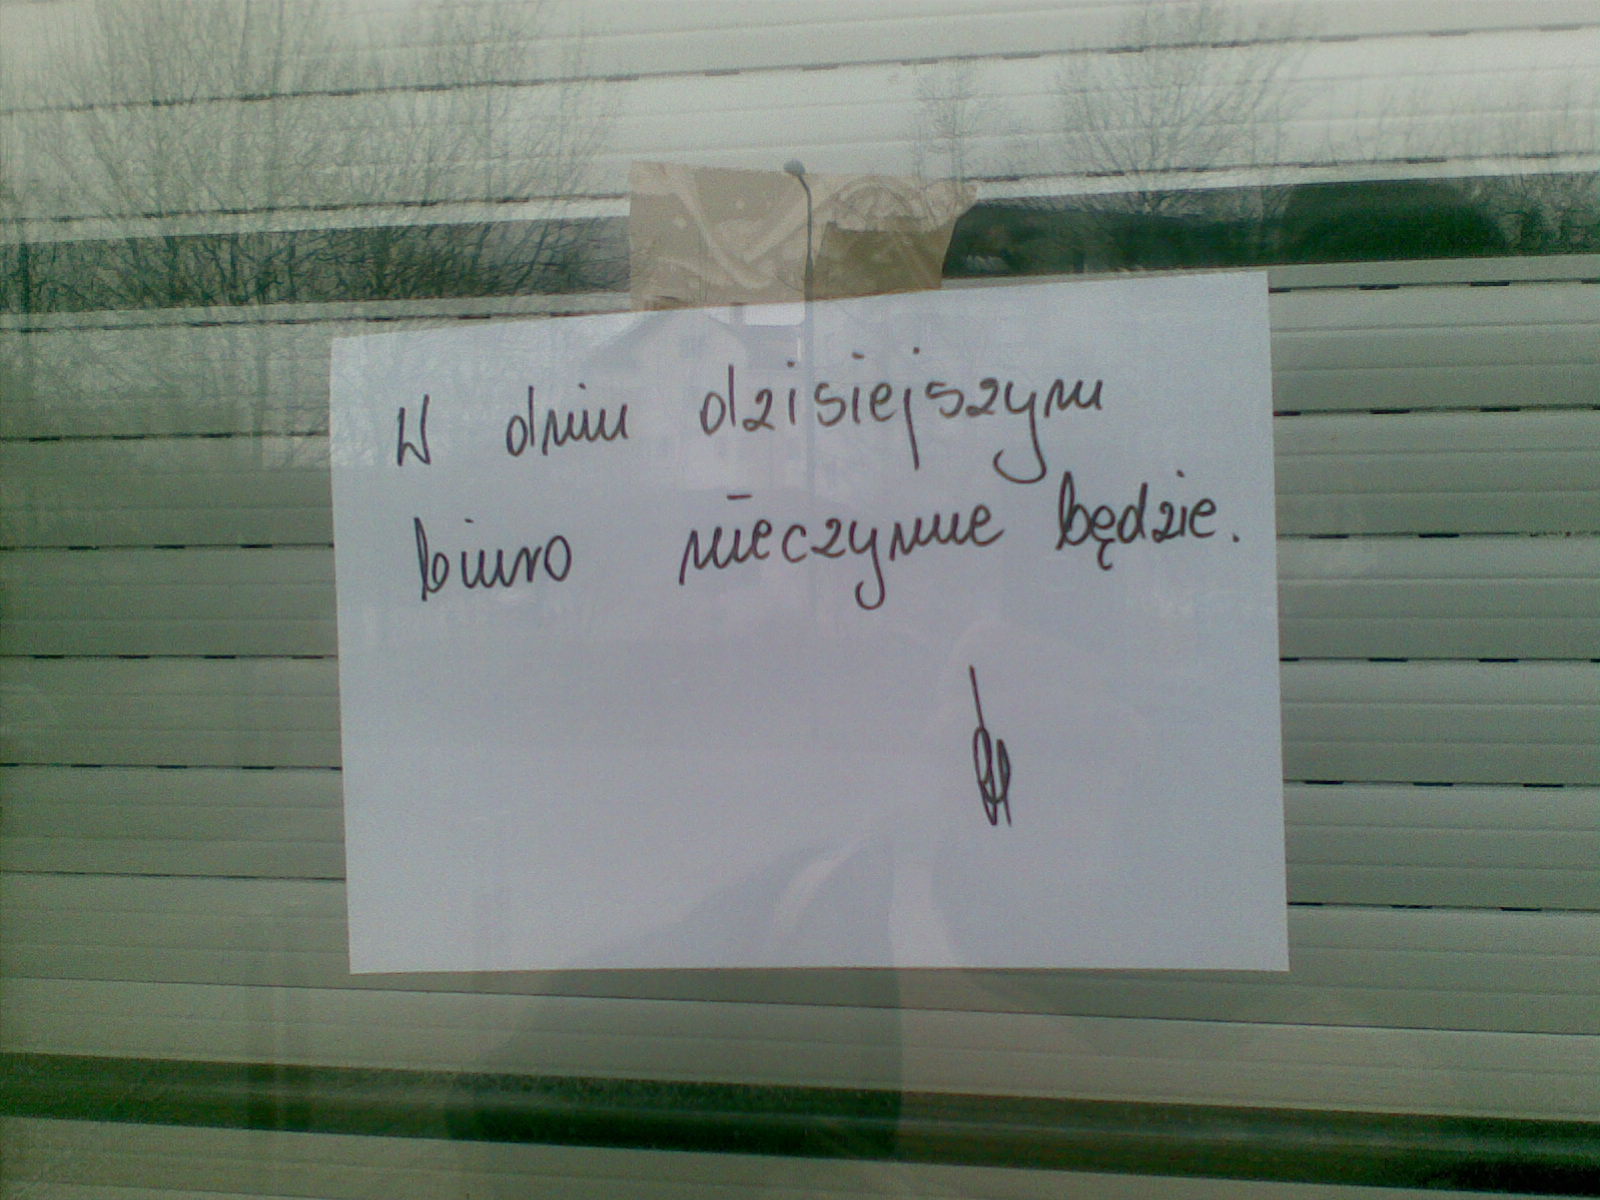 W dniu dzisiejszym
biuro nieczynne będzie.